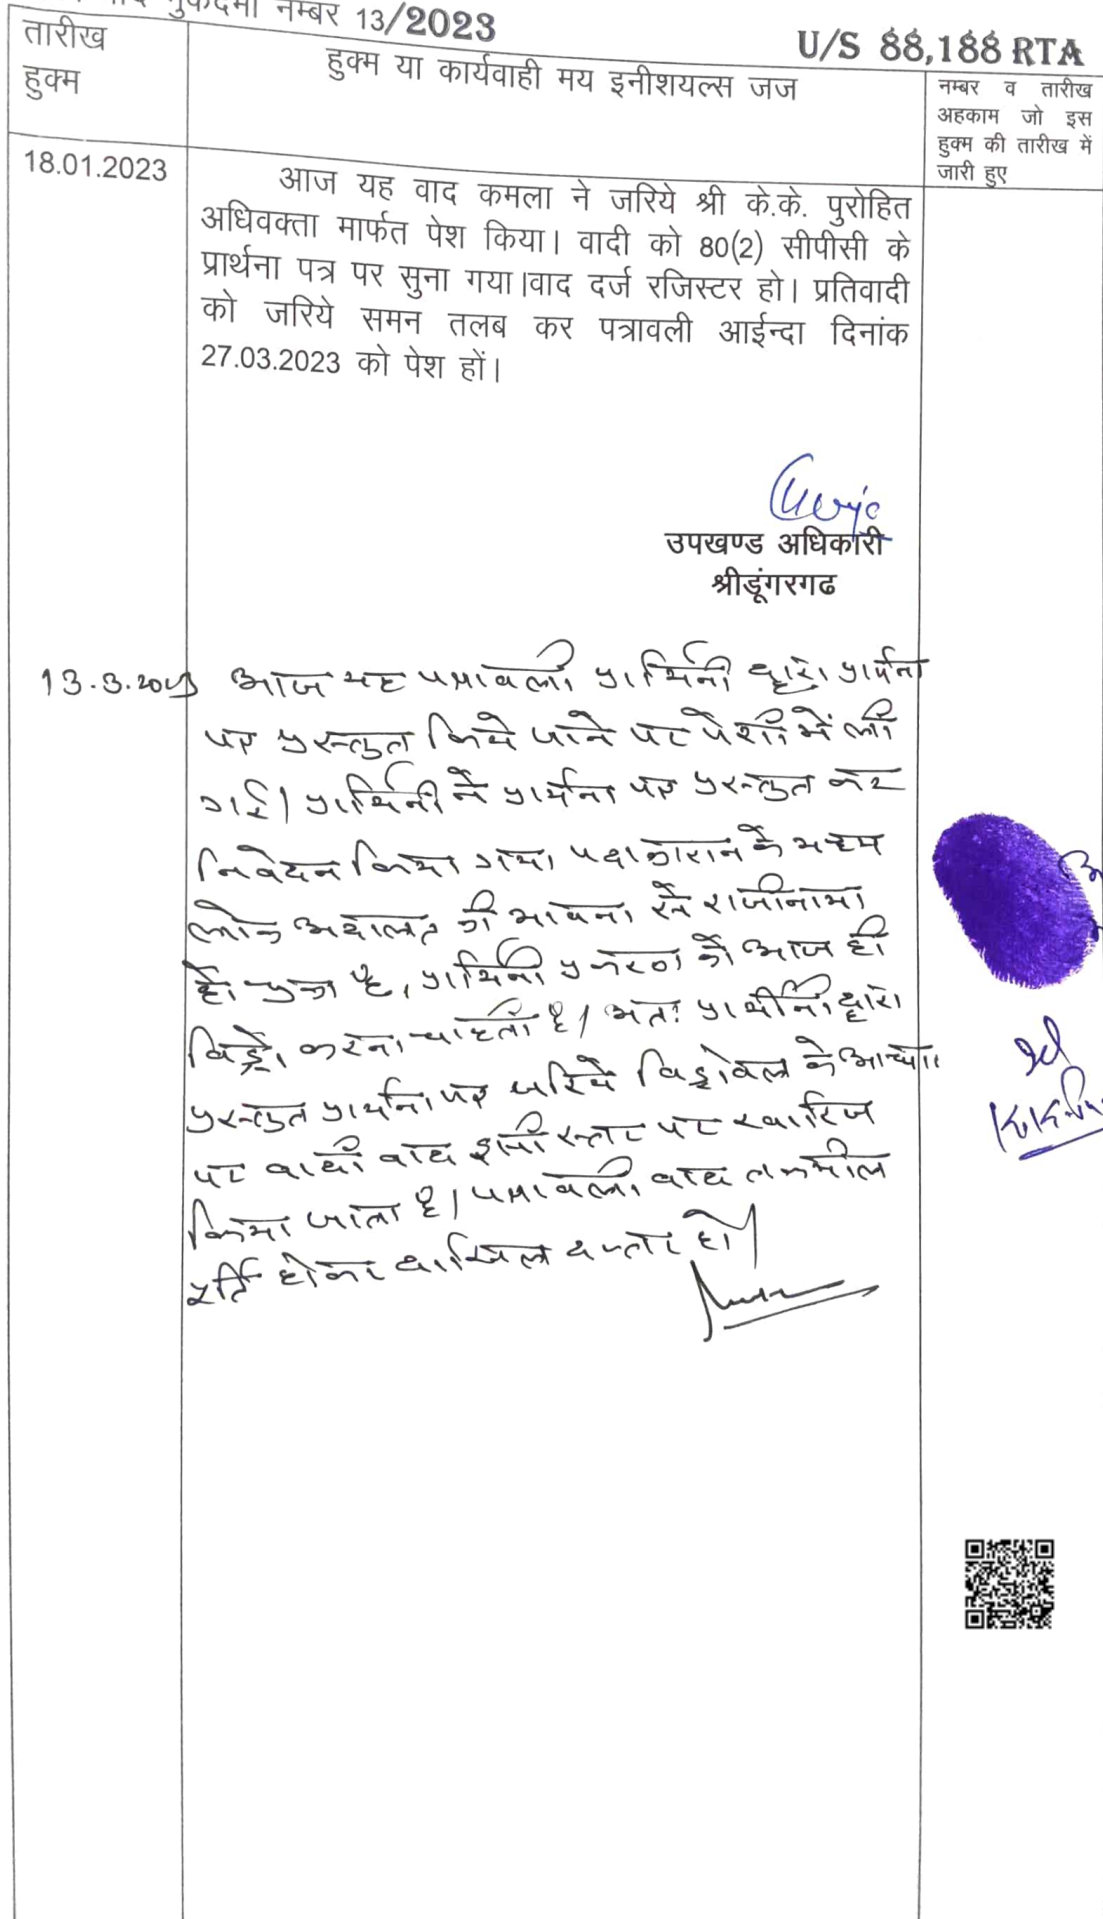 मुकदमा नम्बर 13/2023
U/S 88,188 RTA
तारीख
हुक्म
हुक्म या कार्यवाही मय इनीशयल्स जज
नम्बर व तारीख
अहकाम जो इस
हुक्म की तारीख में
जारी हुए
18.01.2023
आज यह वाद कमला ने जरिये श्री के.के. पुरोहित
अधिवक्ता मार्फत पेश किया। वादी को 80(2) सीपीसी के
प्रार्थना पत्र पर सुना गया।वाद दर्ज रजिस्टर हो। प्रतिवादी
को जरिये समन तलब कर पत्रावली आईन्दा दिनांक
27.03.2023 को पेश हों।
उपखण्ड अधिकारी
श्रीडूंगरगढ
13.3.2023 आज यह पत्रावली प्रार्थिनी द्वारा प्रार्थना
पत्र प्रस्तुत किये जाने पर पेशी में ली
गई। प्रार्थिनी ने प्रार्थना पत्र प्रस्तुत कर
निवेदन किया गया पक्षकारान के मध्य
लोक अदालत की भावना से राजीनामा
हो चुका है, प्रार्थिनी प्रकरण को आज ही
विड्रो करना चाहती है। अतः प्रार्थीनी द्वारा
प्रस्तुत प्रार्थना पत्र जरिये विड्रोवल के आधार
पर वादी वाद इसी स्तर पर खारिज
किया जाता है। पत्रावली बाद तकमील
पूर्ति होकर दाखिल दफ्तर हो।